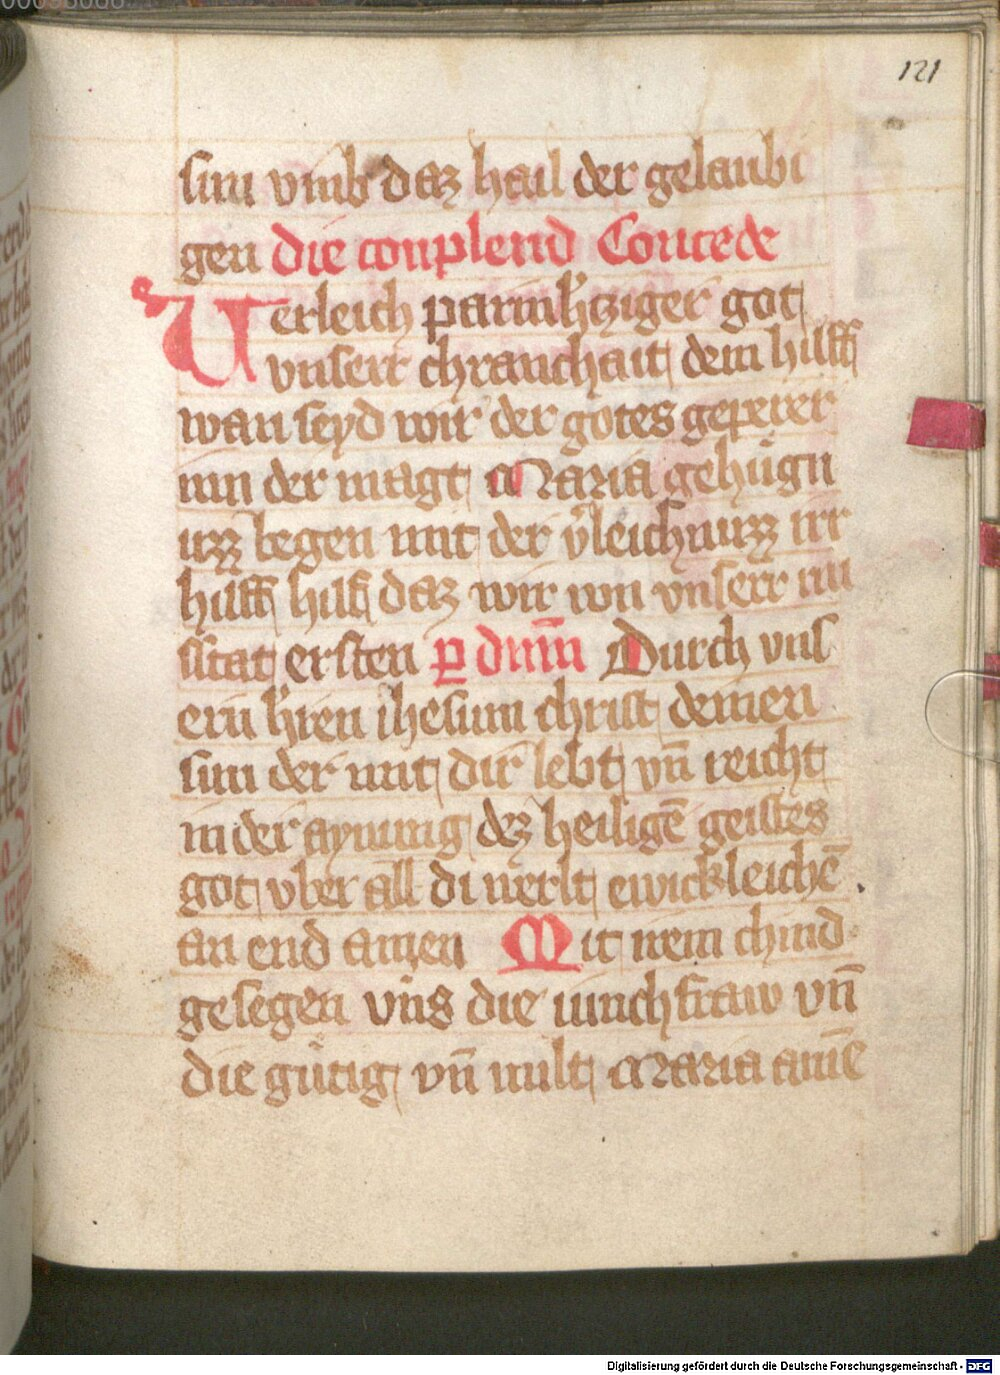 121
sun vmb daz hail der gelaubi
gen die conplend Concede
Verleich parmh'tziger got
vnserr chranchait dein hilff
wan seyd wir der gotes geperer
inn der magt Maria gehügn
uzz begen mit der v'leichnuzz irr
hilff hilf daz wir von vnserr mi
sstat ersten p dnm̄ Durch vns
ern h'ren ihesum christ deinen
sun der mit dir lebt vn̄ reicht
in der aynung dez heiligē geistes
got vber all di werlt ewickleichē
an end amen Mit irem chind
gesegen vns die iunchfraw vn̄
die gütig vn̄ milt Maria amē
Digitalisierung gefördert durch die Deutsche Forschungsgemeinschaft - DFG